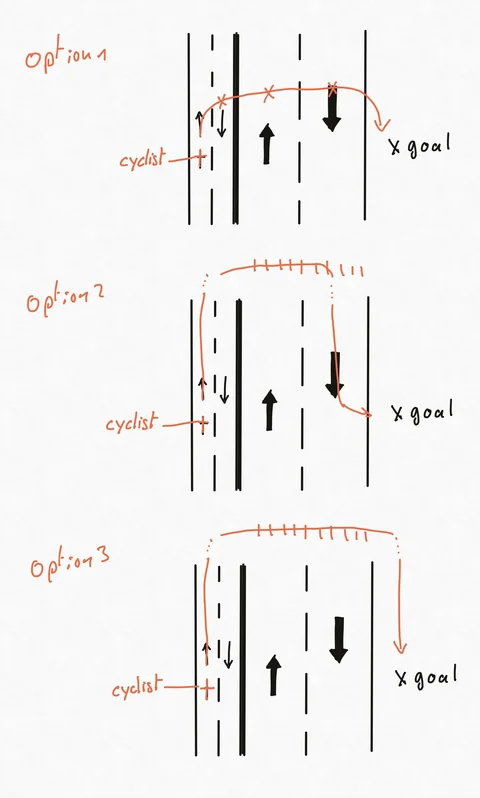 Option 1
cyclist
X goal
Option 2
cyclist
X goal
Option 3
cyclist
X goal